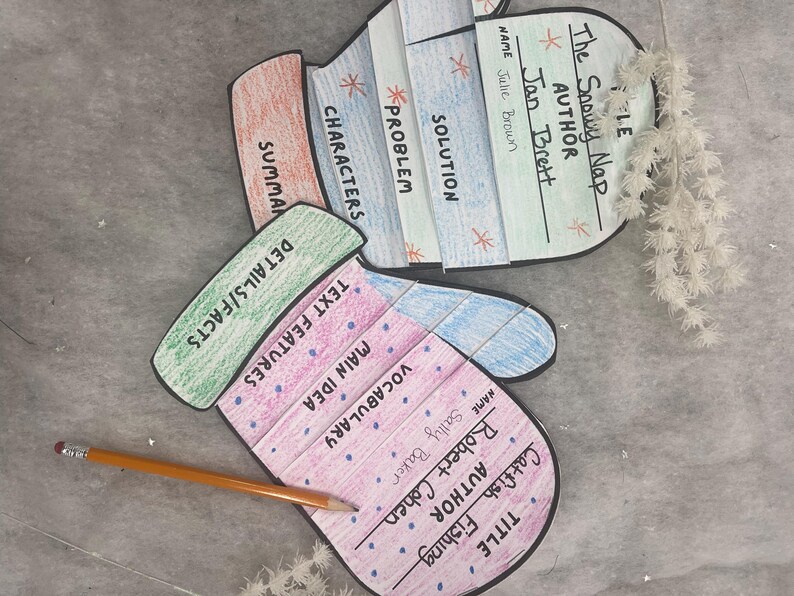 The Snowy Nap
AUTHOR
Jan Brett
NAME Julie Brown
SOLUTION
PROBLEM
CHARACTERS
SUMMA
TITLE
Catfish Fishing
AUTHOR
Robert Cohen
NAME Sally Baker
VOCABULARY
MAIN IDEA
TEXT FEATURES
DETAILS/FACTS